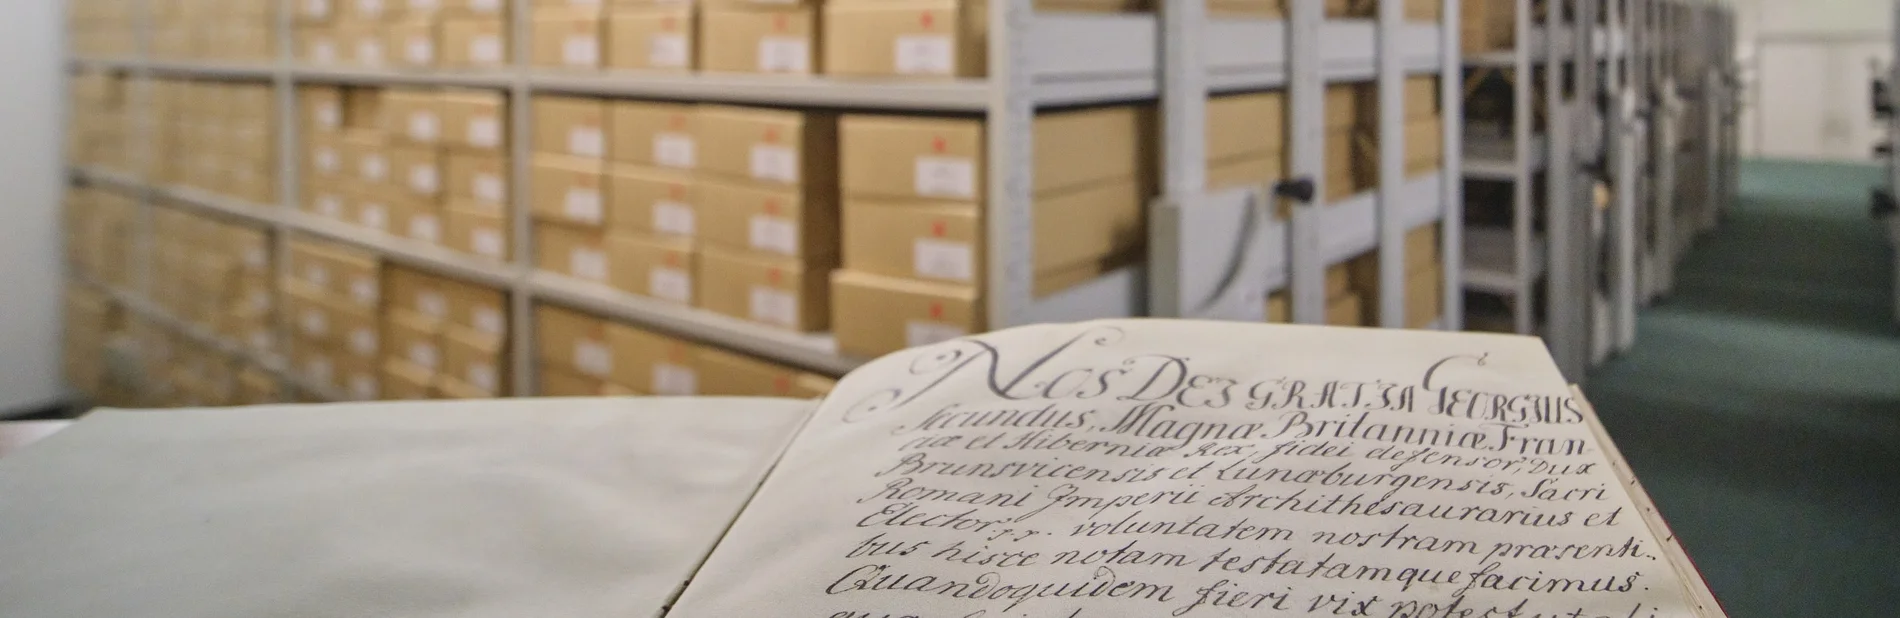 NOS DEI GRATIA GEORGIUS
Secundus, Magnæ Britanniæ Fran
ciæ et Hiberniæ Rex, fidei defensor, Dux
Brunsvicensis et Lunæburgensis, Sacri
Romani Imperii Archithesaurarius et
Elector p.p. voluntatem nostram præsenti-
bus hisce notam testatamque facimus.
Quandoquidem fieri vix potest ut